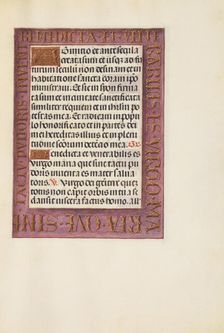 BENEDICTA ET VENE
RABILIS ES VIRGO MA
RIA QVE SINE
TACTV PVDORIS INVEN
Ab initio et ante secula
creata sum et usq; ad fu
turum seculum non desinam et in
habitatione sancta coram ipso
ministraui. Et sic in syon
firmata sum et in ciuitate
sanctificata similiter
requieui et in iherusalem potestas
mea. Et radicaui in popu
lo honorificato et in partes dei
mei hereditas illius et in ple
nitudine sanctorum
detentio mea.
Benedicta et venerabilis es
virgo maria que sine tactu pu
doris inuenta es mater salua
toris. V. Virgo dei genitrix que
totus non capit orbis in tua se
clausit viscera factus homo. All